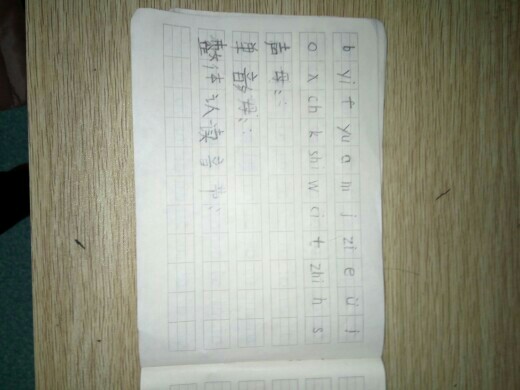 b yi t yu a ni j zi e ü l
o x ch k shi w ci t zhi h s
声母:
单韵母:
整体认读音节: